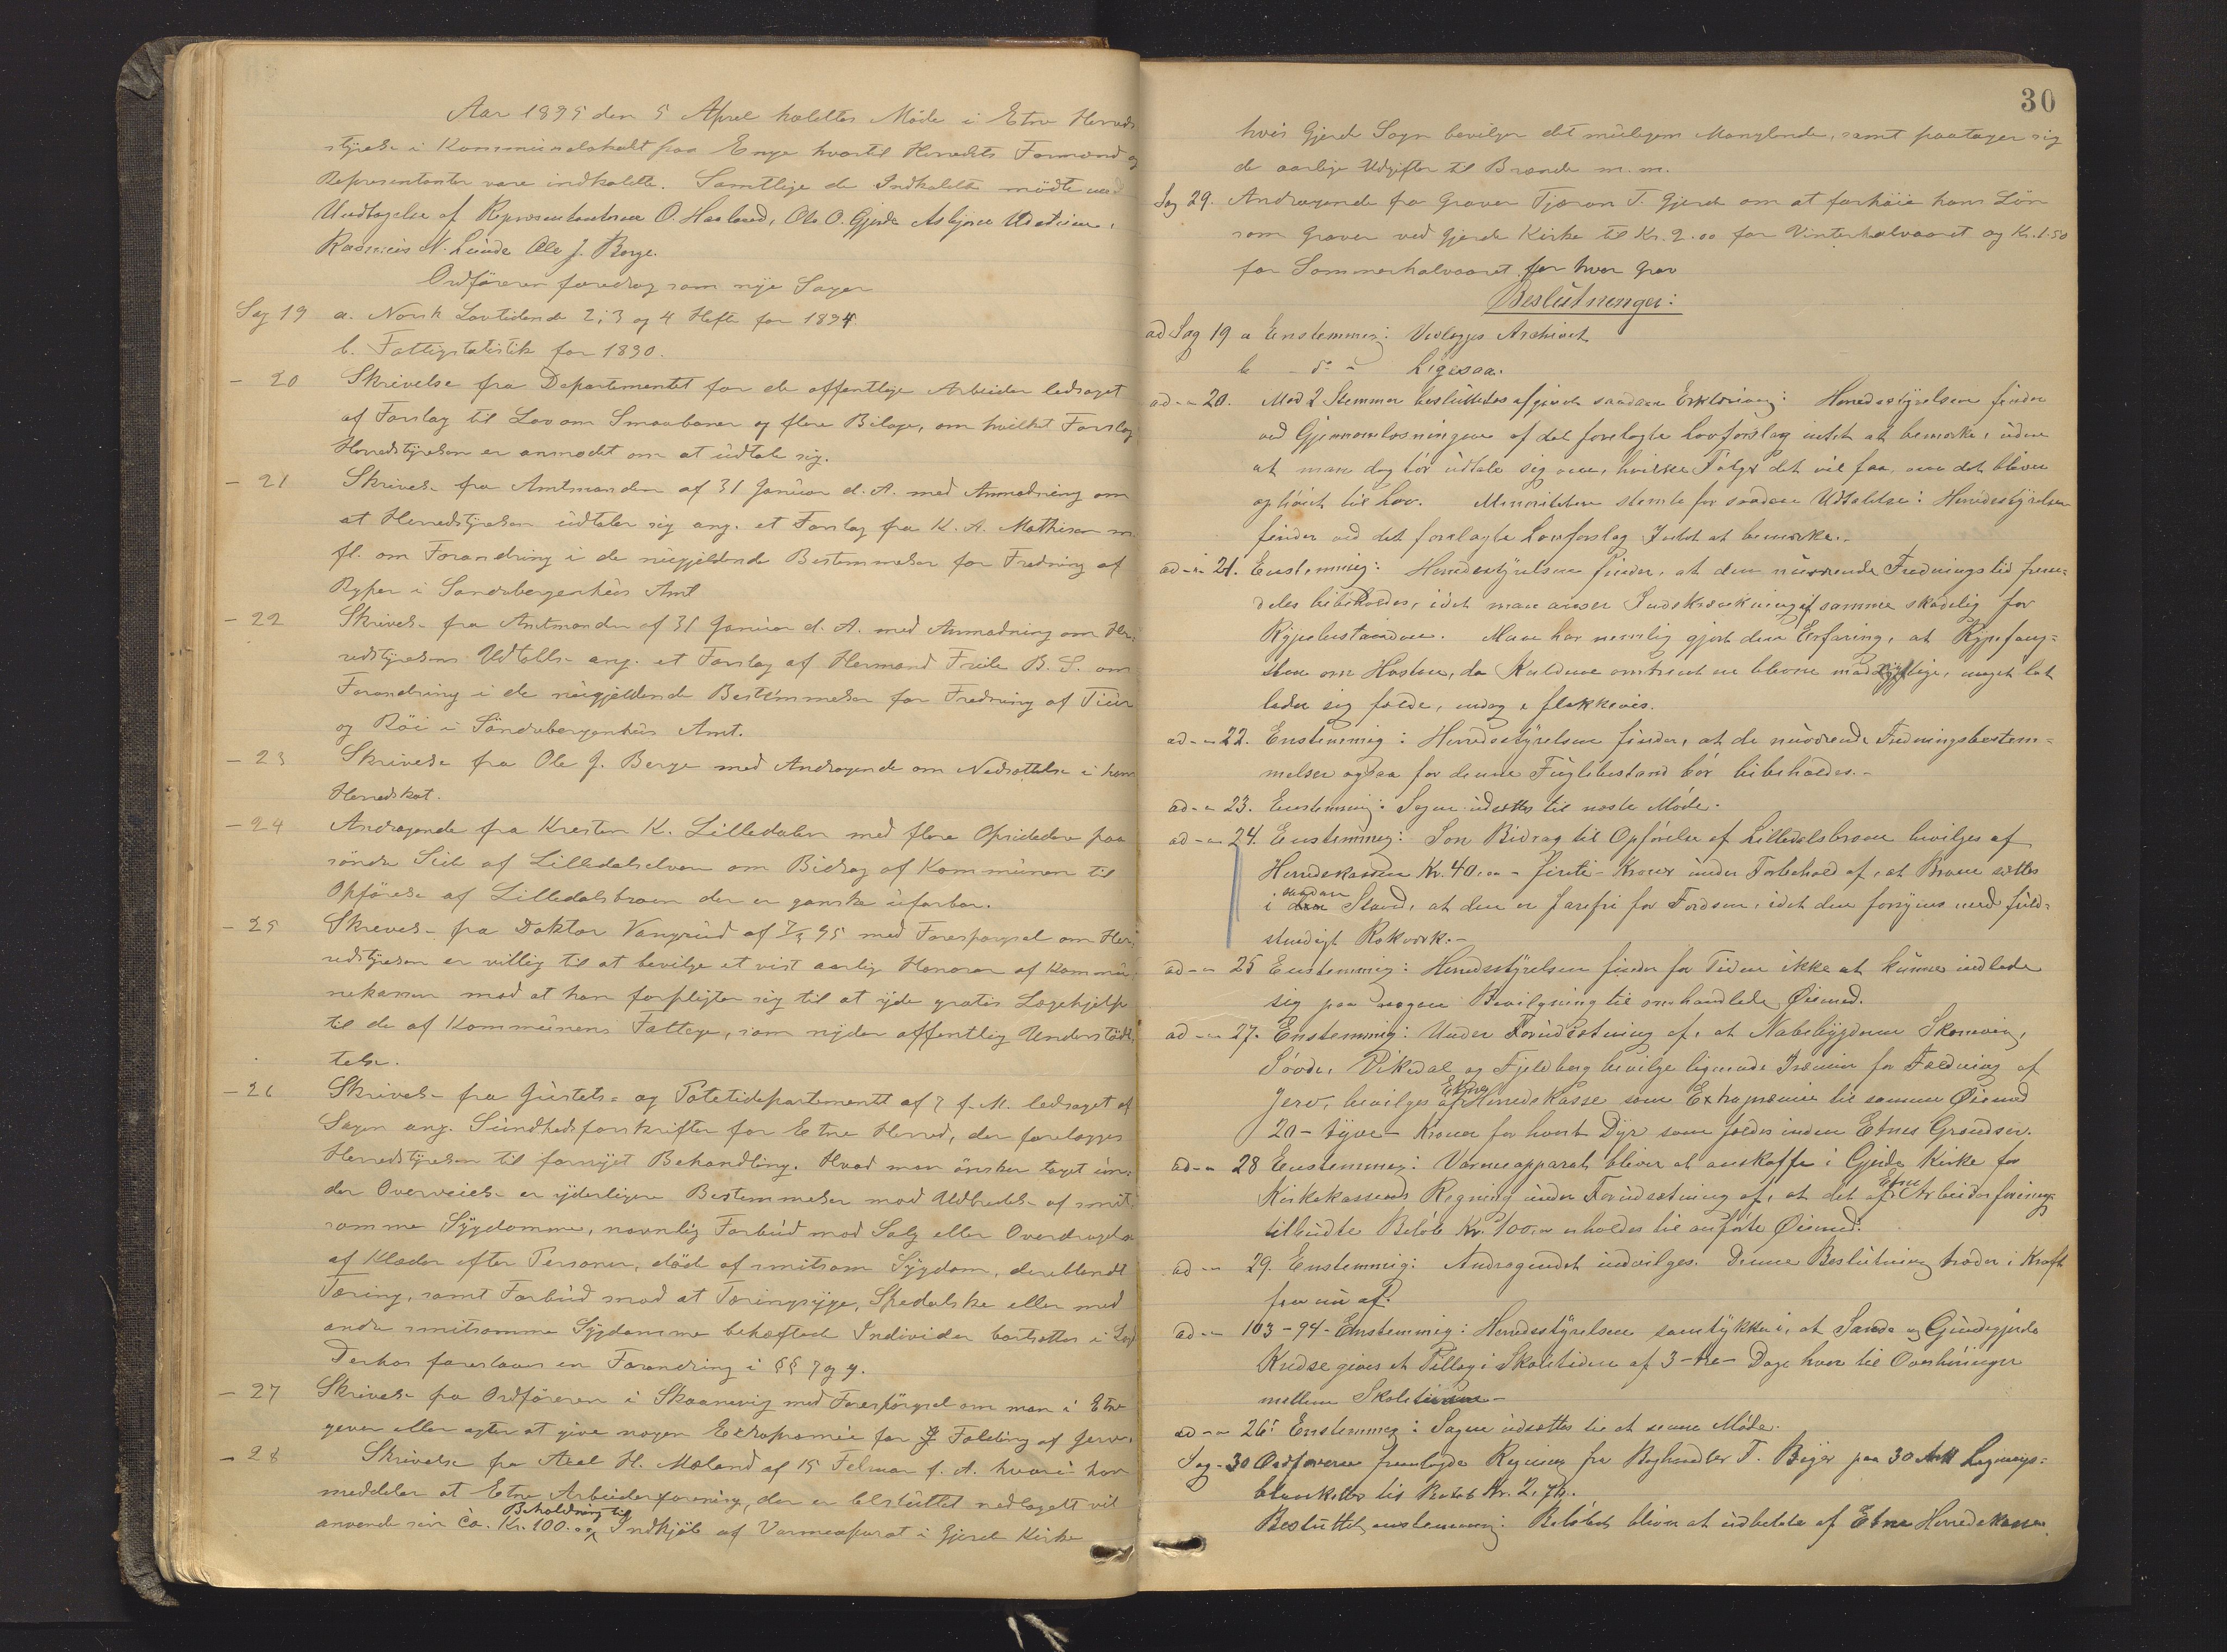 Aar 1895 den 5 April holdtes Møde i Etne Herreds
styrelse i Kommunelokalet paa Enge hvortil Herredets Formænd og
Repræsentanter vare indkaldte. Samtlige de Indkaldte mødte med
Undtagelse af Repræsentanterne O. Haaland, Ole O. Gjerde Asbjørn
Rasmus N. Lunde Ole J. Berge.
Ordføreren foredrog som nye Sager
Sag 19 a. Norsk Lovtidende 2, 3 og 4 Hefte for 1894.
b. Fattigstatistik for 1890.
- 20 Skrivelse fra Departementet for de offentlige Arbeider ledsaget
af Forslag til Lov om Smaabaner og flere Bilage, om hvilket Forslag
Herredstyrelsen er anmodet om at udtale sig.
- 21 Skrivelse fra Amtmanden af 31 Januar d. A. med Anmodning om
at Herredstyrelsen udtaler sig ang. et Forslag fra K. A. Mathisen m.
fl. om Forandring i de nugjeldende Bestemmelser for Fredning af
Ryper i Søndrebergenhus Amt
- 22 Skrivelse fra Amtmanden af 31 Januar d. A. med Anmodning om Her-
redstyrelsens Udtalelse ang. et Forslag af Hermand Friele B. S. om
Forandring i de nugjeldende Bestemmelser for Fredning af Tiur
og Røi i Søndrebergenhus Amt.
- 23 Skrivelse fra Ole J. Berge med Andragende om Nedsættelse i hans
Herredskat.
- 24 Andragende fra Kresten K. Lilledalen med flere Opsiddere paa
søndre Side af Lilledalselven om Bidrag af Kommunen til
Opførelse af Lilledalsbroen der er ganske ufarbar.
- 25 Skrivelse fra Doktor Vangrud af 7/3 95 med Forespørgsel om Her-
redstyrelsen er villig til at bevilge et vist aarlig Honorar af Kommu-
nekassen mod at han forpligter sig til at yde gratis Lægehjelp
til de af Kommunens Fattige, som nyder offentlig Understøt-
telse.
- 26 Skrivelse fra Justits- og Politidepartementet af 7 f. M. ledsaget af
Sagen ang. Sundhedsforskrifter for Etne Herred, der forelægges
Herredstyrelsen til fornyet Behandling. Hvad man ønsker taget un-
der Overveielse er yderligere Bestemmelser mod Udbredelse af smit-
somme Sygdomme, navnlig Forbud mod Salg eller Overdragelse
af Klæder efter Personer, død af smitsom Sygdom, deriblandt
Tæring, samt Forbud mod at Tæringssyge, Spedalske eller med
andre smitsomme Sygdomme behæftede Individer bortsættes i Lægd
Derhos foreslaaes en Forandring i §§ 7 og 9.
- 27 Skrivelse fra Ordføreren i Skaanevig med Forespørgsel om man i Etne
giver eller agter at give nogen Extrapræmie for Fælding af Jerv.
- 28 Skrivelse fra Axel H. Mæland af 15 Februar f. A. hvori han
meddeler at Etne Arbeiderforening, der er besluttet nedlagt vil
anvende sin Beholdning ca. Kr. 100.00 til Indkjøb af Varmeaparat i Gjerde Kirke
30
hvis Gjerde Sogn bevilger det muligens Manglende, samt paatager sig
de aarlige Udgifter til Brænde m. m.
Sag 29. Andragende fra Graver Tjæran T. Gjerde om at forhøie hans Løn
som Graver ved Gjerde Kirke til Kr. 2.00 for Vinterhalvaaret og Kr. 1.50
for Sommerhalvaaret for hver Grav
Beslutninger:
ad Sag 19 a Enstemmig: Vedlægges Archivet
b - do - Ligesaa.
ad - " 20. Mod 2 Stemmer besluttedes afgivet saadan Erklæring: Herredsstyrelsen finder
ved Gjennemlæsningen af det forelagte Lovforslag intet at bemærke, uden
at man dog tør udtale sig om, hvilke Følger det vil faa, om det bliver
ophøiet til Lov. Minoriteten stemte for saadan Udtalelse: Herredsstyrelsen
finder ved det forelagte Lovforslag Intet at bemærke.-
ad - " 21. Enstemmig: Herredsstyrelsen finder, at den nuværende Fredningstid frem-
deles bibeholdes, idet man anser Indskrænkning af samme skadelig for
Rypebestanden. Man har nemlig gjort den Erfaring, at Rypefang-
sten om Høsten, da Kuldene omtrent er blevne , meget let
lader sig fælde, endog i flokkevis.
ad - " 22. Enstemmig: Herredsstyrelsen finder, at de nuværende Fredningsbestem-
melser ogsaa for denne Fuglebestand bør bibeholdes.-
ad - " 23. Enstemmig: Sagen udsættes til næste Møde.
ad - " 24. Enstemmig: Som Bidrag til Opførelse af Lilledalsbroen bevilges af
Herredskassen Kr. 40,00 - Firti - Kroner under Forbehold af, at Broen sættes
i saadan Stand, at den er farefri for Færdsel, idet den forsynes med fuld-
stændigt Rækverk.-
ad - " 25 Enstemmig: Herredsstyrelsen finder for Tiden ikke at kunne indlade
sig paa nogen Bevilgning til omhandlede Øiemed.
ad - " 27. Enstemmig: Under Forudsætning af, at Nabobygderne Skonevig,
Søvde, Vikedal og Fjeldberg bevilge lignende Præmier for Fældning af
Jerv, bevilges af Etne Herredskasse som Extrapræmie til samme Øiemed
20 - tyve - Kroner for hvert Dyr som fældes inden Etnes Grændser.
ad - " 28 Enstemmig: Varmeapparat bliver at anskaffe i Gjerde Kirke for
Kirkekassens Regning under Forudsætning af, at det af Etne Arbeiderforening
tilbudte Beløb Kr. 100,00 erholdes til anførte Øiemed.
ad - " 29. Enstemmig: Andragendet indvilges. Denne Beslutning træder i Kraft
fra nu af.
ad - " 103-94 - Enstemmig: Herredsstyrelsen samtykker i, at Sande og Grindegjerde
Kredse gives et Tillæg i Skoletiden af 3 - tre - Dage hver til Overhøringer
mellem Skoletiderne -
ad - " 26: Enstemmig: Sagen udsættes til et senere Møde.
Sag - 30 Ordføreren fremlagde Regning fra Boghandler F. Beyer paa 30 Ark Ligningsblanketter til Beløb Kr. 2,70.
Besluttet enstemmig: Beløbet bliver at udbetale af Etne Herredskasse.